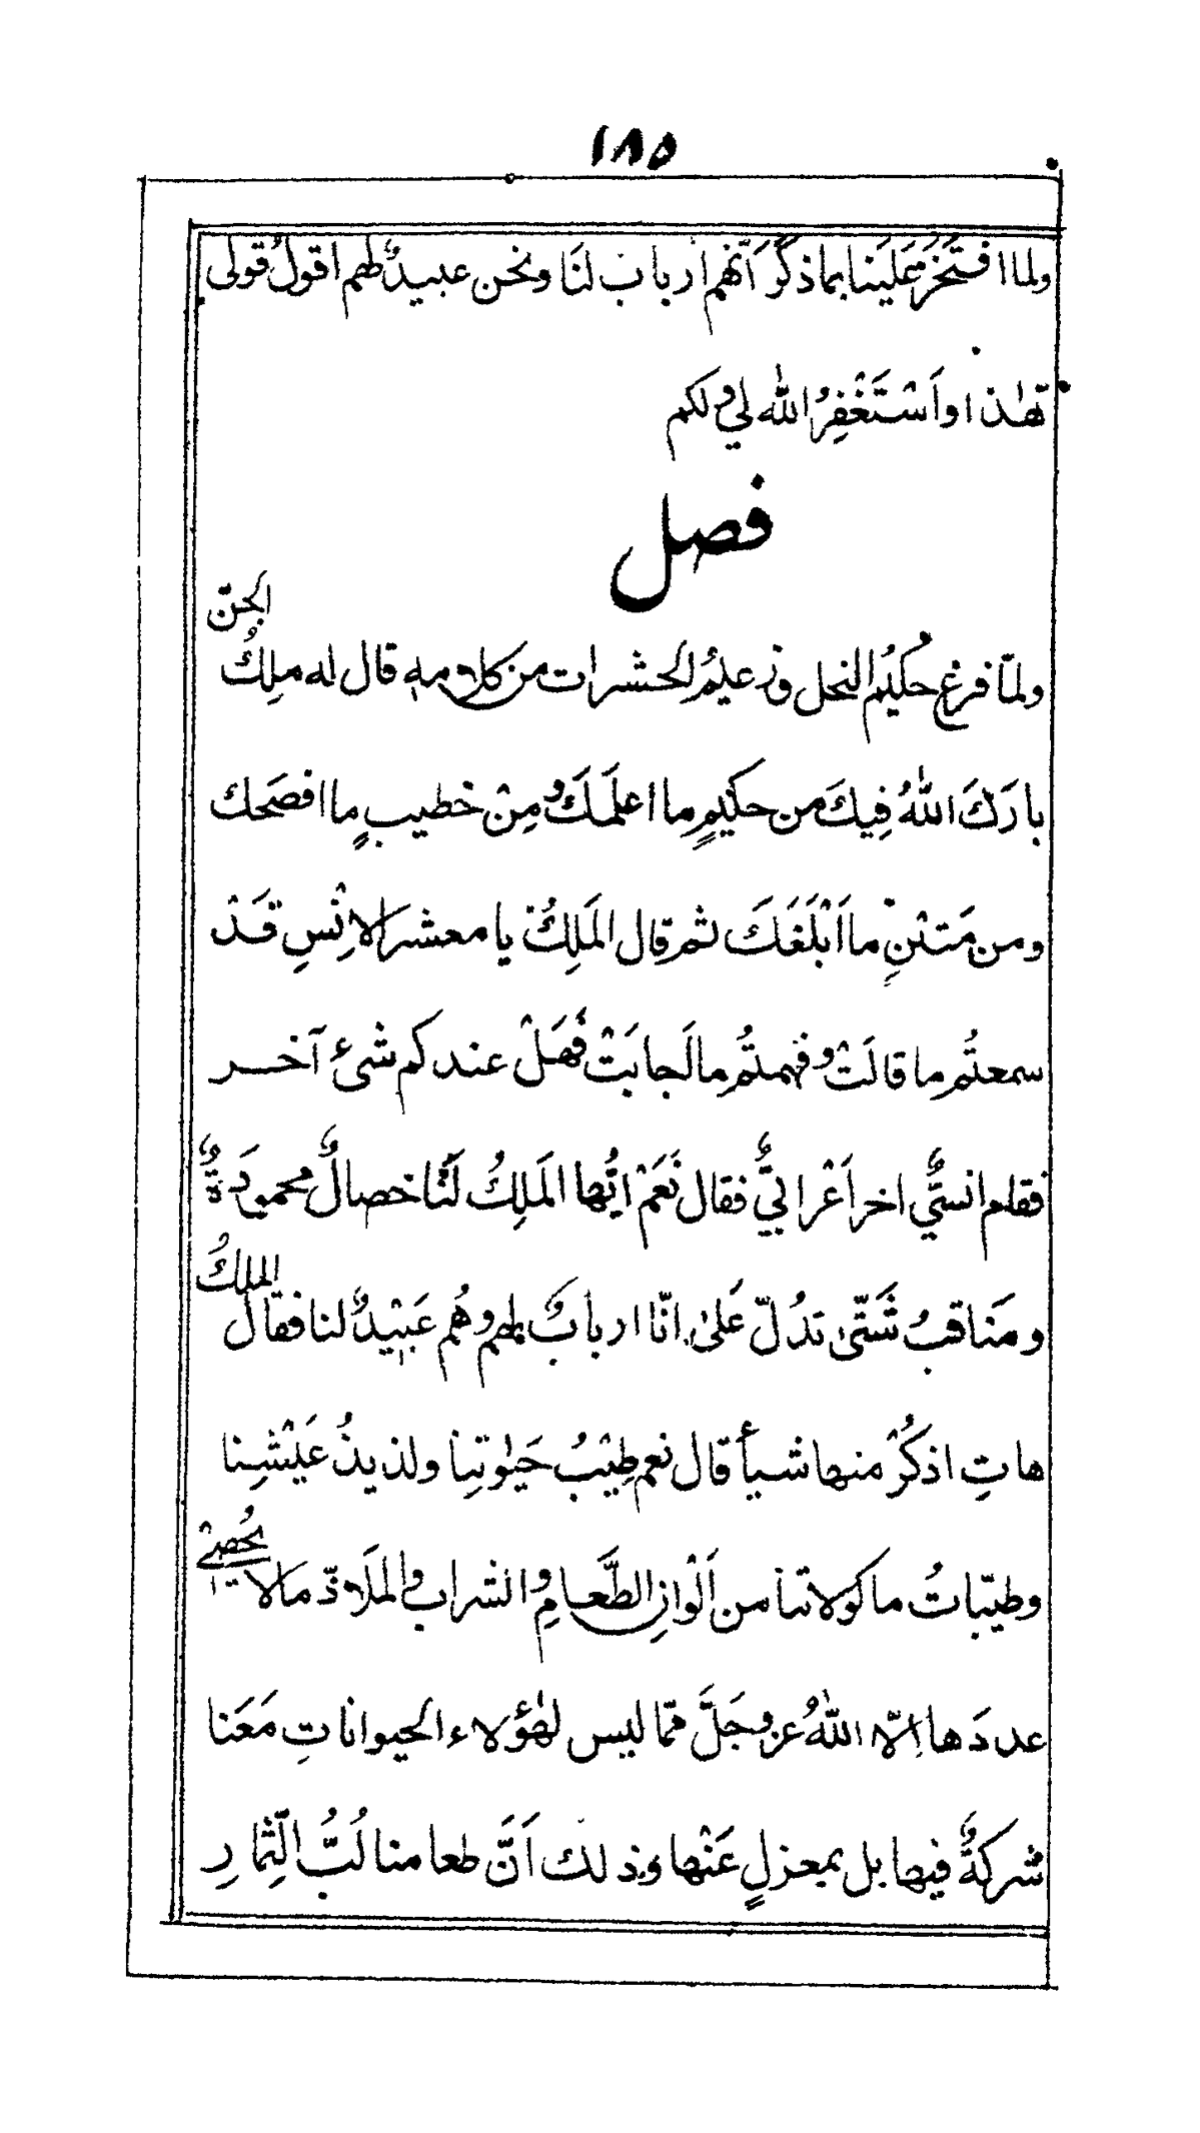 ١٨٥
ولما افتَخَرَ عَلَينا بما ذكَرَ اَنّهم ارباب لنَا ونحن عبيدٌ لهم اقولُ قولى
هٰذا واَسْتَغْفِرُ اللّٰه لي ولكم
فصل
ولمّا فرغ حكيُم النحل وزعيمُ الحشرات من كلامه قال له ملِكُ الجنّ
بارَكَ اللّٰهُ فِيكَ من حكيمٍ ما اعلمَكَ ومِنْ خطيبٍ ما افصَحك
ومن مَتنْنٍ ما اَبْلَغَكَ ثم قال المَلِكُ يا معشر الانِسِ قَدْ
سمعتُم ما قالَتْ وفهمتُم ما اَجابَتْ فَهَلْ عندكم شئ آخر
فقام انسيٌّ اخر اَعْرابيٌّ فقال نَعَمْ ايّها المَلِكُ لَنَا خصالٌ محمودَةٌ
ومَناقبُ شَتّىٰ تدُلّ عَلىٰ انّا اربابٌ لهم وهُم عَبيْدٌ لنا فقال الملكُ
هاتِ اذكُرْ منها شيأ قال نعم طِيْبُ حَيٰوتِنا ولذيذُ عَيْشِنا
وطيّباتُ ماكولاتنا من اَلْوانِ الطَّعامِ والشراب والملَاذّ مالا يُحْصٰى
عددَها الّا اللّٰهُ عزوجَلَّ ممّا ليس لهٰؤلاء الحيواناتِ مَعَنا
شركةٌ فيها بل بمعزلٍ عَنْها وذلك اَنَّ طعامنا لُبُّ الثِّمارِ